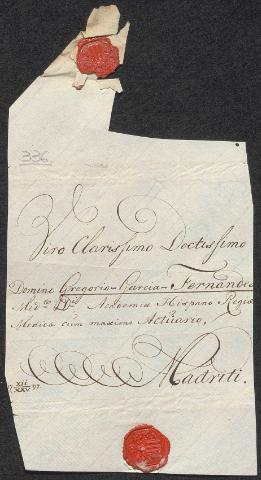 336
Viro Clarissimo Doctissimo
Domino Gregorio-Garcia-Fernández
Academiæ Hispano Regiæ
Medicæ cum maxime Actuario.
Madriti.
XII
XXV 97.